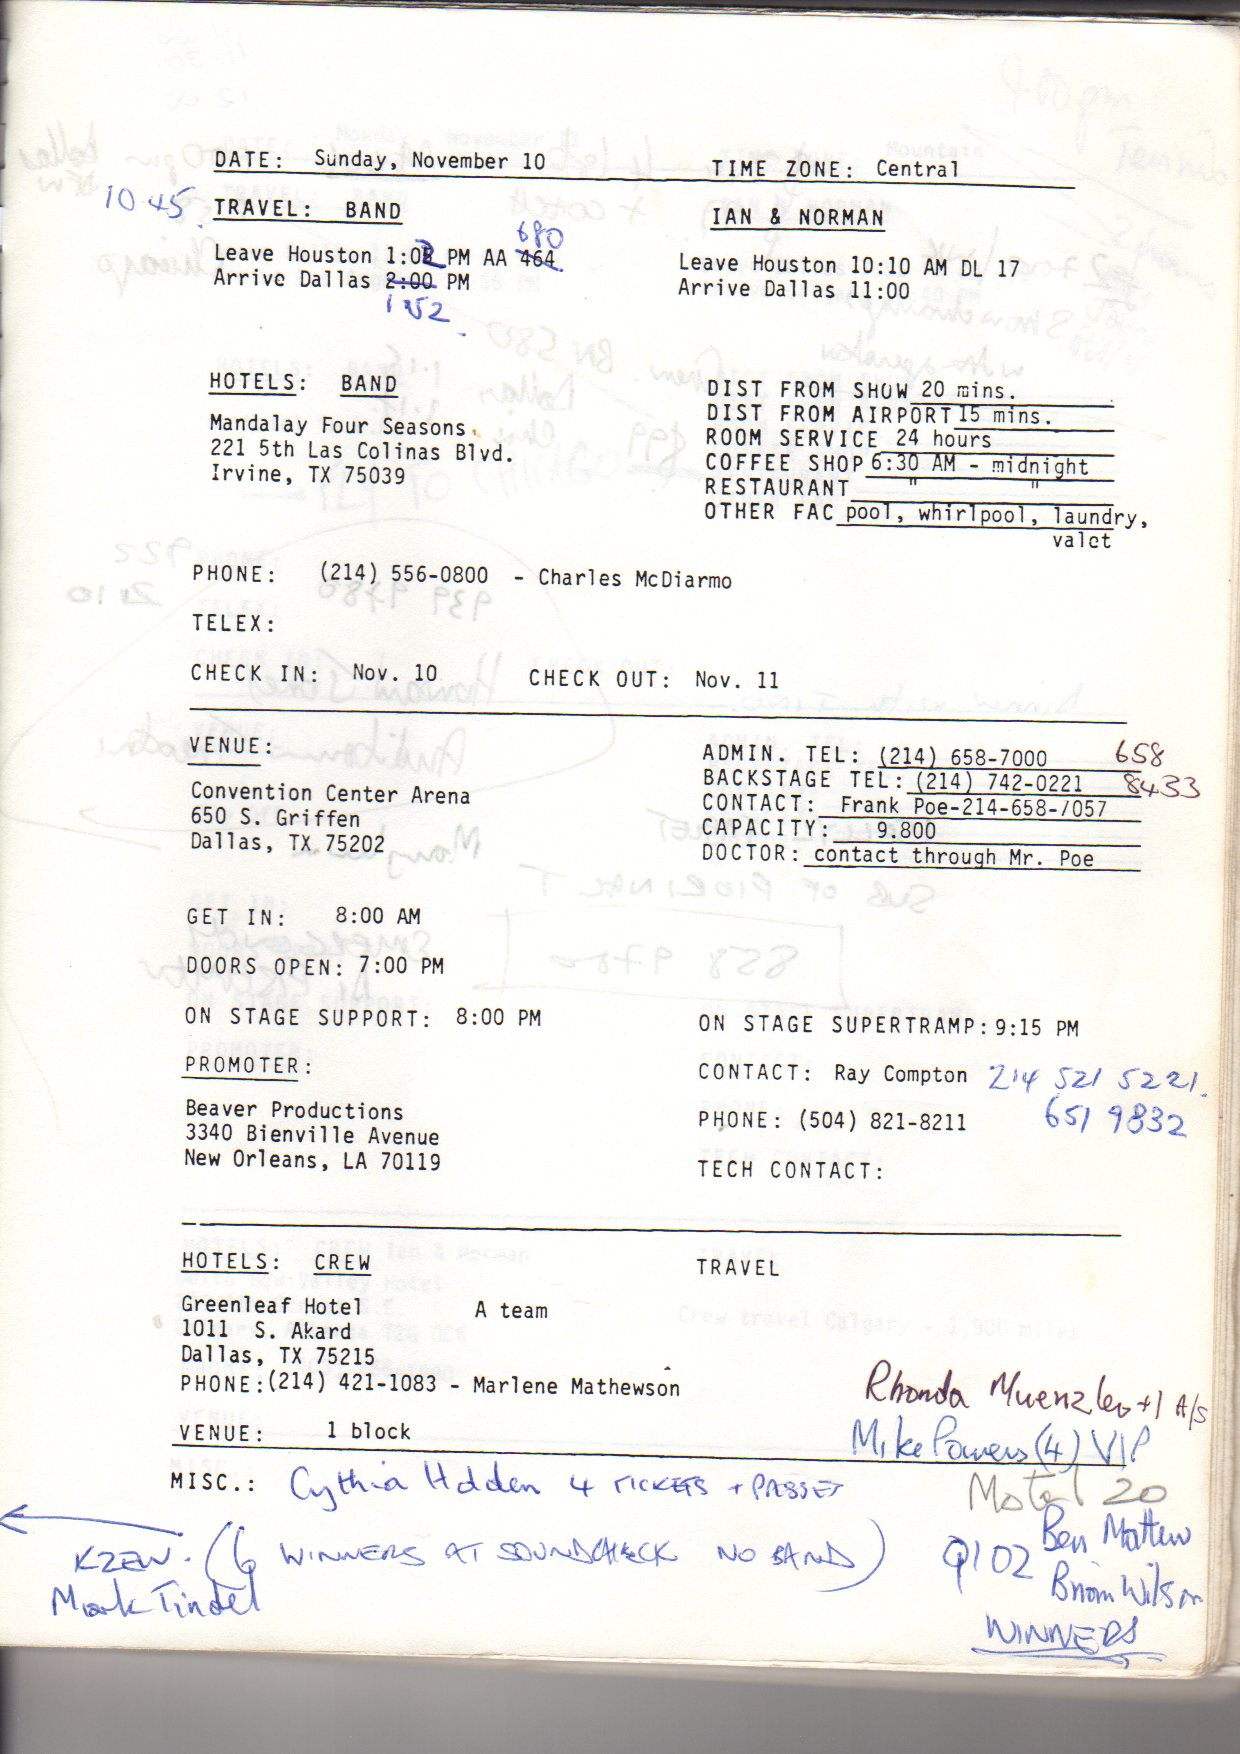 DATE: Sunday, November 10
TIME ZONE: Central
10 45
TRAVEL: BAND
IAN & NORMAN
680
Leave Houston 1:02 PM AA 464
Arrive Dallas 2:00 PM
1 52
Leave Houston 10:10 AM DL 17
Arrive Dallas 11:00
HOTELS: BAND
Mandalay Four Seasons
221 5th Las Colinas Blvd.
Irvine, TX 75039
DIST FROM SHOW 20 mins.
DIST FROM AIRPORT 15 mins.
ROOM SERVICE 24 hours
COFFEE SHOP 6:30 AM - midnight
RESTAURANT " "
OTHER FAC pool, whirlpool, laundry,
valet
PHONE: (214) 556-0800 - Charles McDiarmo
TELEX:
CHECK IN: Nov. 10 CHECK OUT: Nov. 11
VENUE:
Convention Center Arena
650 S. Griffen
Dallas, TX 75202
ADMIN. TEL: (214) 658-7000 658
BACKSTAGE TEL: (214) 742-0221 8433
CONTACT: Frank Poe-214-658-7057
CAPACITY: 9.800
DOCTOR: contact through Mr. Poe
GET IN: 8:00 AM
DOORS OPEN: 7:00 PM
ON STAGE SUPPORT: 8:00 PM
ON STAGE SUPERTRAMP: 9:15 PM
PROMOTER:
Beaver Productions
3340 Bienville Avenue
New Orleans, LA 70119
CONTACT: Ray Compton 214 521 5221.
PHONE: (504) 821-8211 651 9832
TECH CONTACT:
HOTELS: CREW
TRAVEL
Greenleaf Hotel A team
1011 S. Akard
Dallas, TX 75215
PHONE:(214) 421-1083 - Marlene Mathewson
Rhonda Muenzler +1 A/S
VENUE: 1 block
Mike Powers (4) VIP
MISC.: Cythia Holden 4 TICKETS + PASSES
20
KZEW. (6 WINNERS AT SOUNDCHECK NO BAND)
Mark Tindel
Q102 Ben Mattew
Brian Wilson
WINNERS